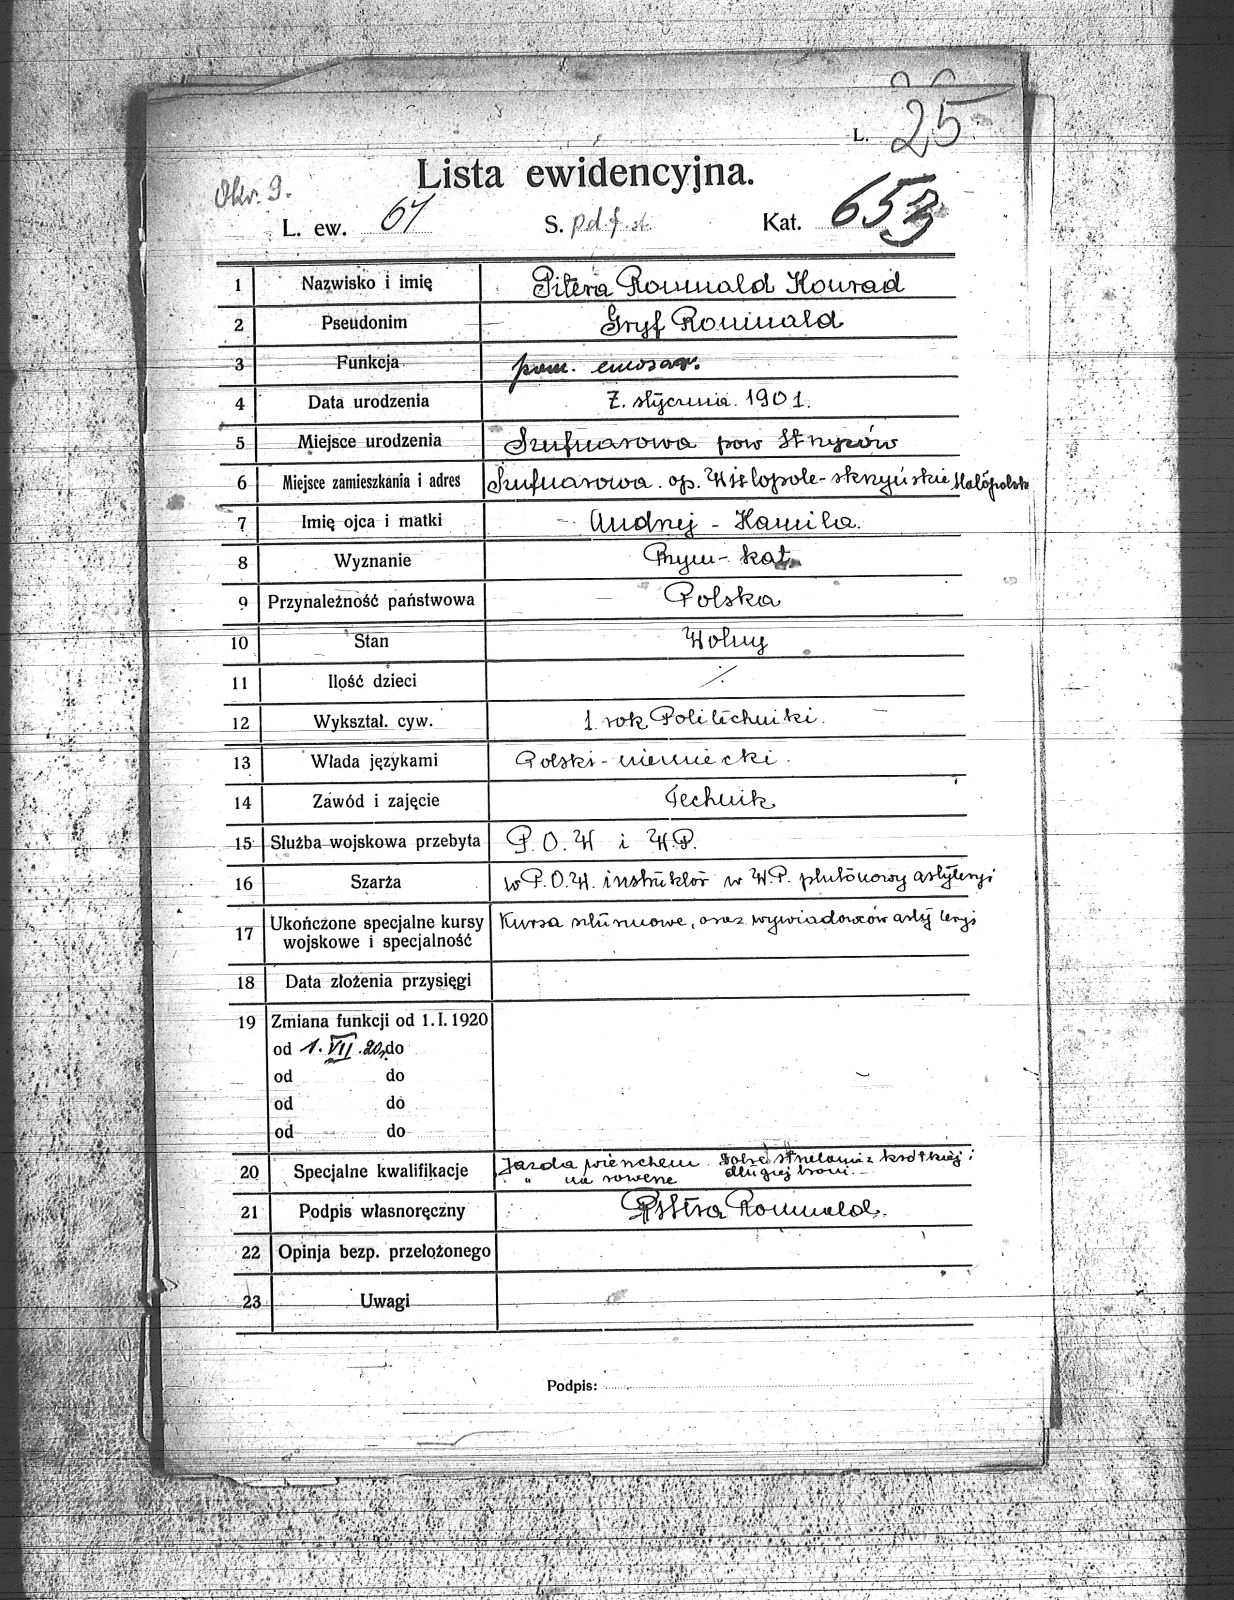 L. 25
Lista ewidencyjna.
Okr. 9.
L. ew. 67 S. pdf. st. Kat. 653
1 Nazwisko i imię Pitera Romuald Konrad
2 Pseudonim Gryf Romuald
3 Funkcja pom.
4 Data urodzenia 7. stycznia 1901.
5 Miejsce urodzenia Szufnarowa pow Strzyzów
6 Miejsce zamieszkania i adres Szufnarowa. op. Wielopole-skrzyńskie Małopolska
7 Imię ojca i matki Andrzej - Kamila.
8 Wyznanie Rzym-kat.
9 Przynależność państwowa Polska
10 Stan Wolny
11 Ilość dzieci ·/·
12 Wykształ. cyw. 1 rok Politechniki.
13 Włada językami Polski-niemiecki.
14 Zawód i zajęcie Technik
15 Służba wojskowa przebyta P.O.W i W.P.
16 Szarża w P.O.W. instruktor w W.P. plutonowy artyleryi
17 Ukończone specjalne kursy Kursa szturmowe, oraz wywiadowców artyleryi
wojskowe i specjalność
18 Data złożenia przysięgi
19 Zmiana funkcji od 1. I. 1920
od 1. VII. 20 do
od do
od do
od do
20 Specjalne kwalifikacje Jazda wierzchem Dobre strzelanie z krótkiej i
" na rowerze długiej broni.
21 Podpis własnoręczny Pitera Romuald.
22 Opinja bezp. przełożonego
23 Uwagi
Podpis: